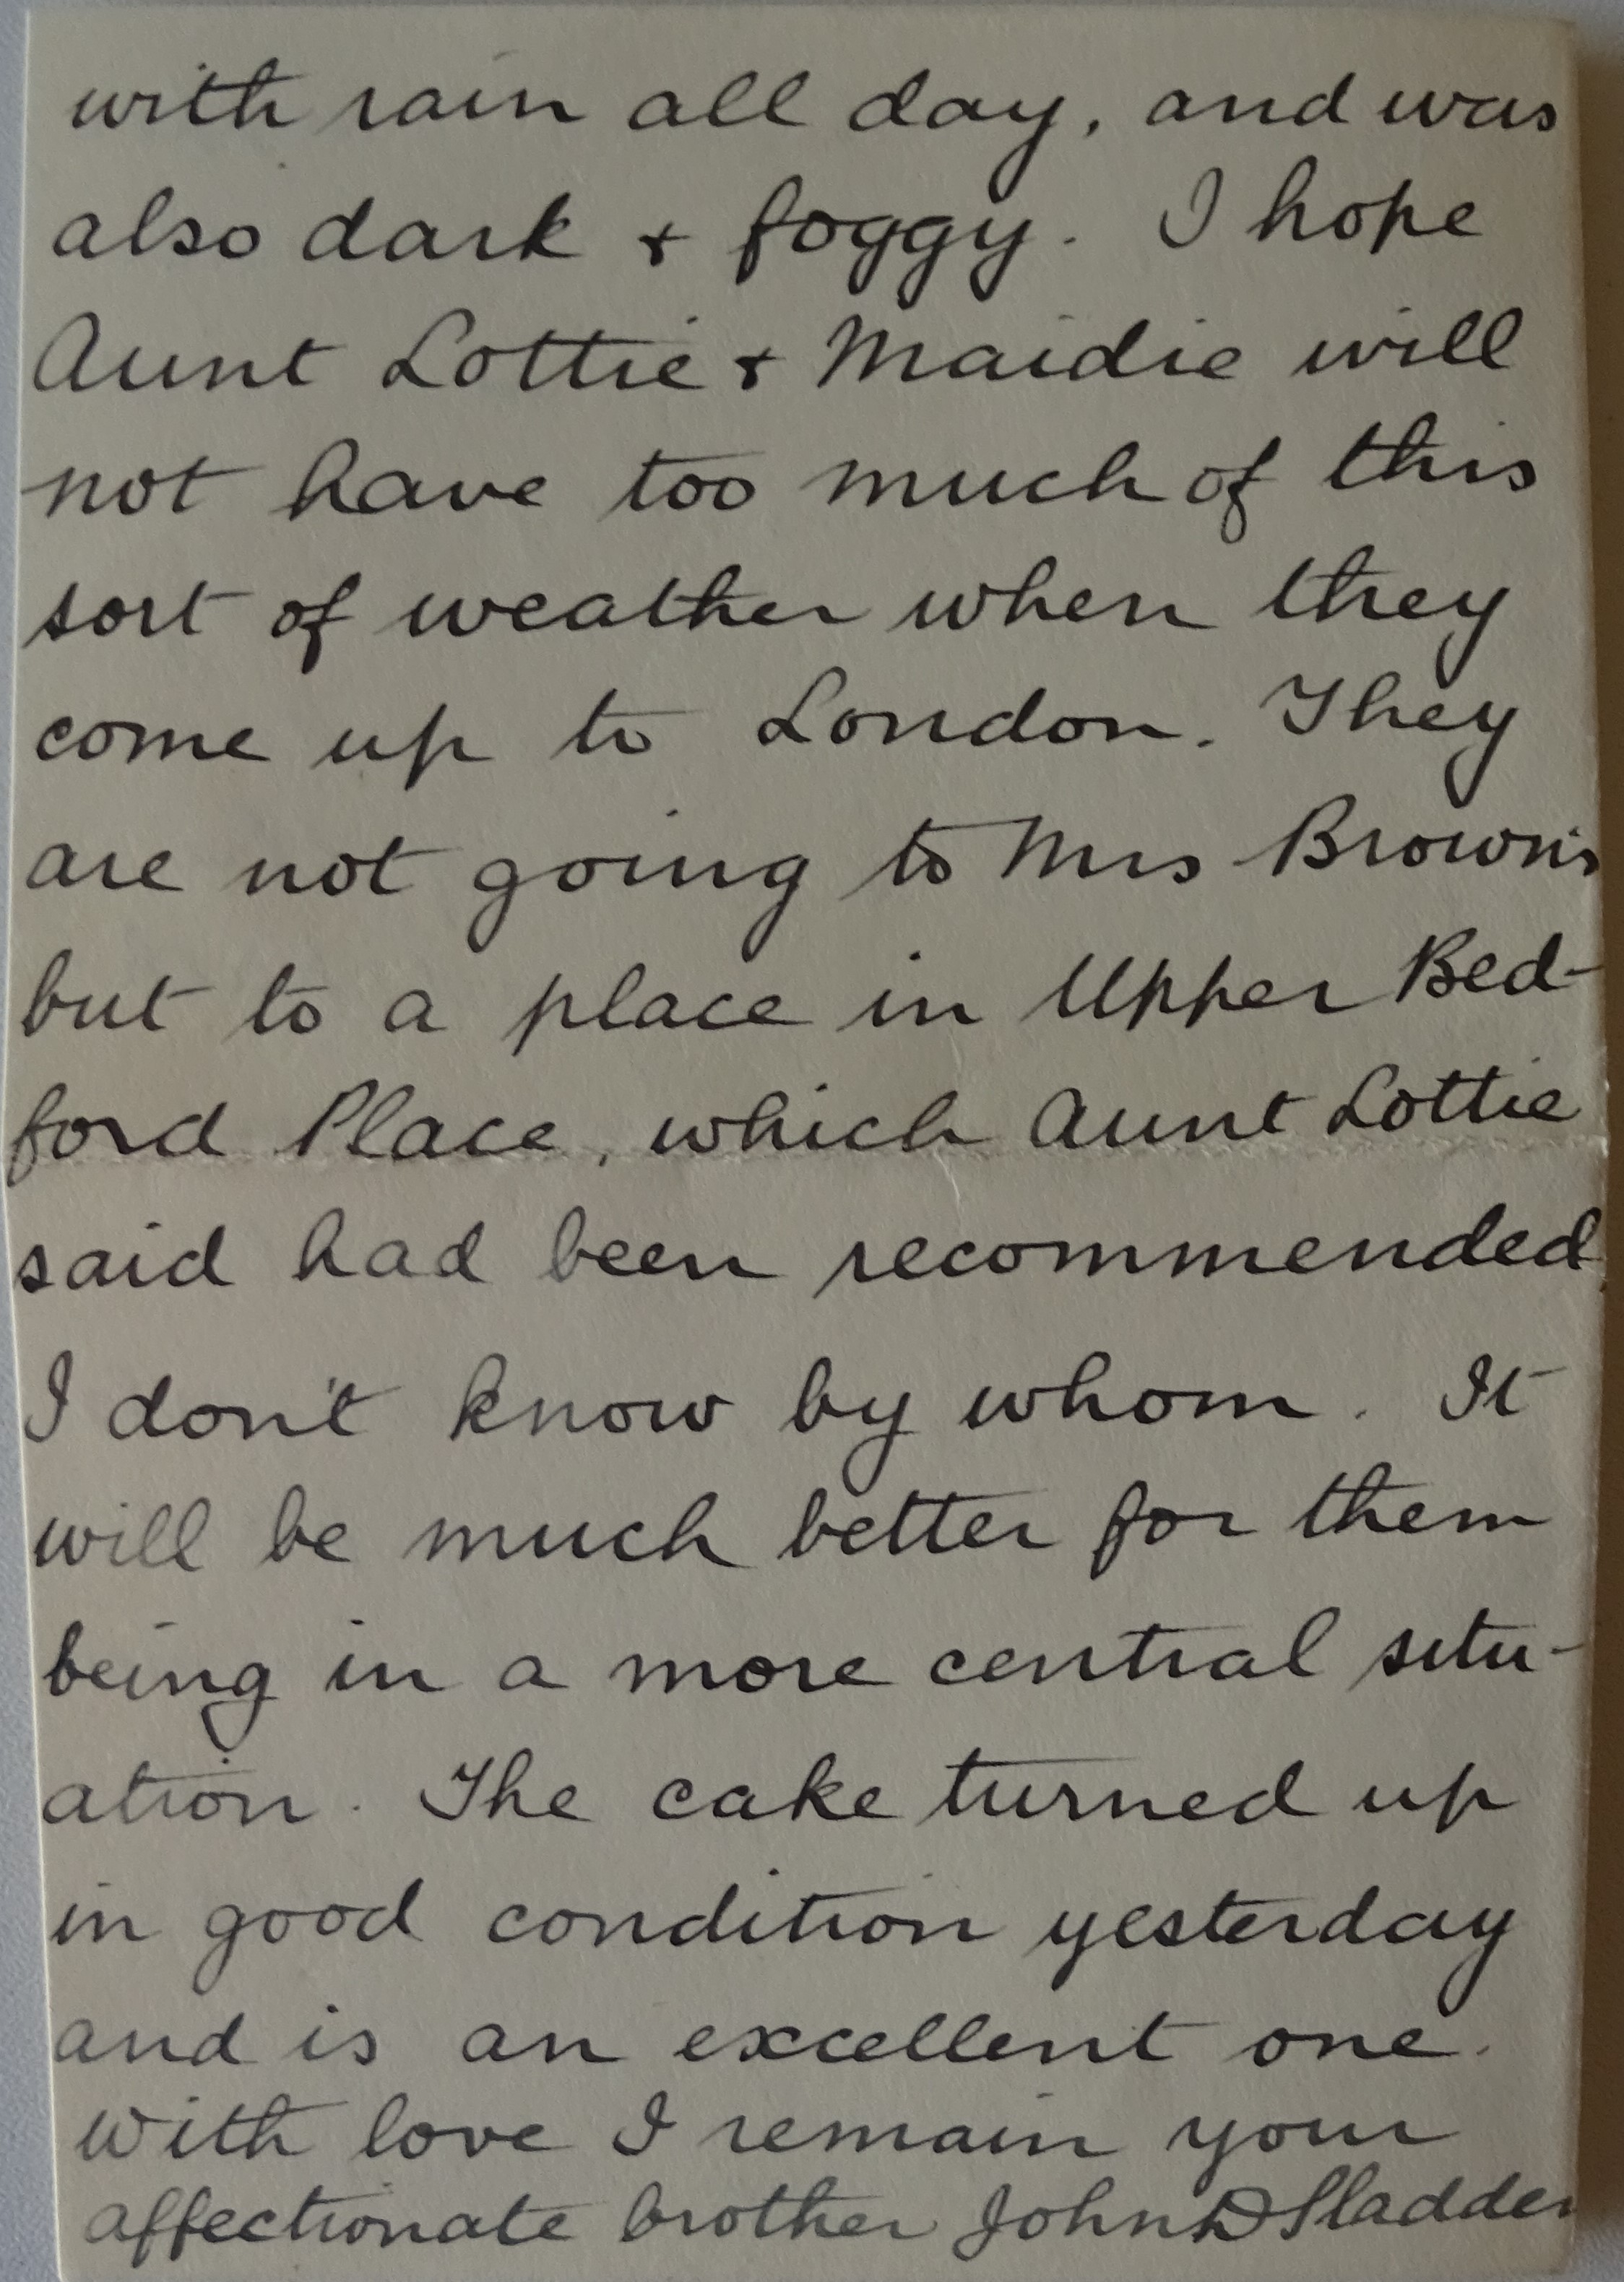 with rain all day, and was
also dark + foggy. I hope
Aunt Lottie + Maidie will
not have too much of this
sort of weather when they
come up to London. They
are not going to Mrs Brown's
but to a place in Upper Bed-
ford Place, which Aunt Lottie
said had been recommended
I don't know by whom. It
will be much better for them
being in a more central situ-
ation. The cake turned up
in good condition yesterday
and is an excellent one.
With love I remain your
affectionate brother John D Sladden